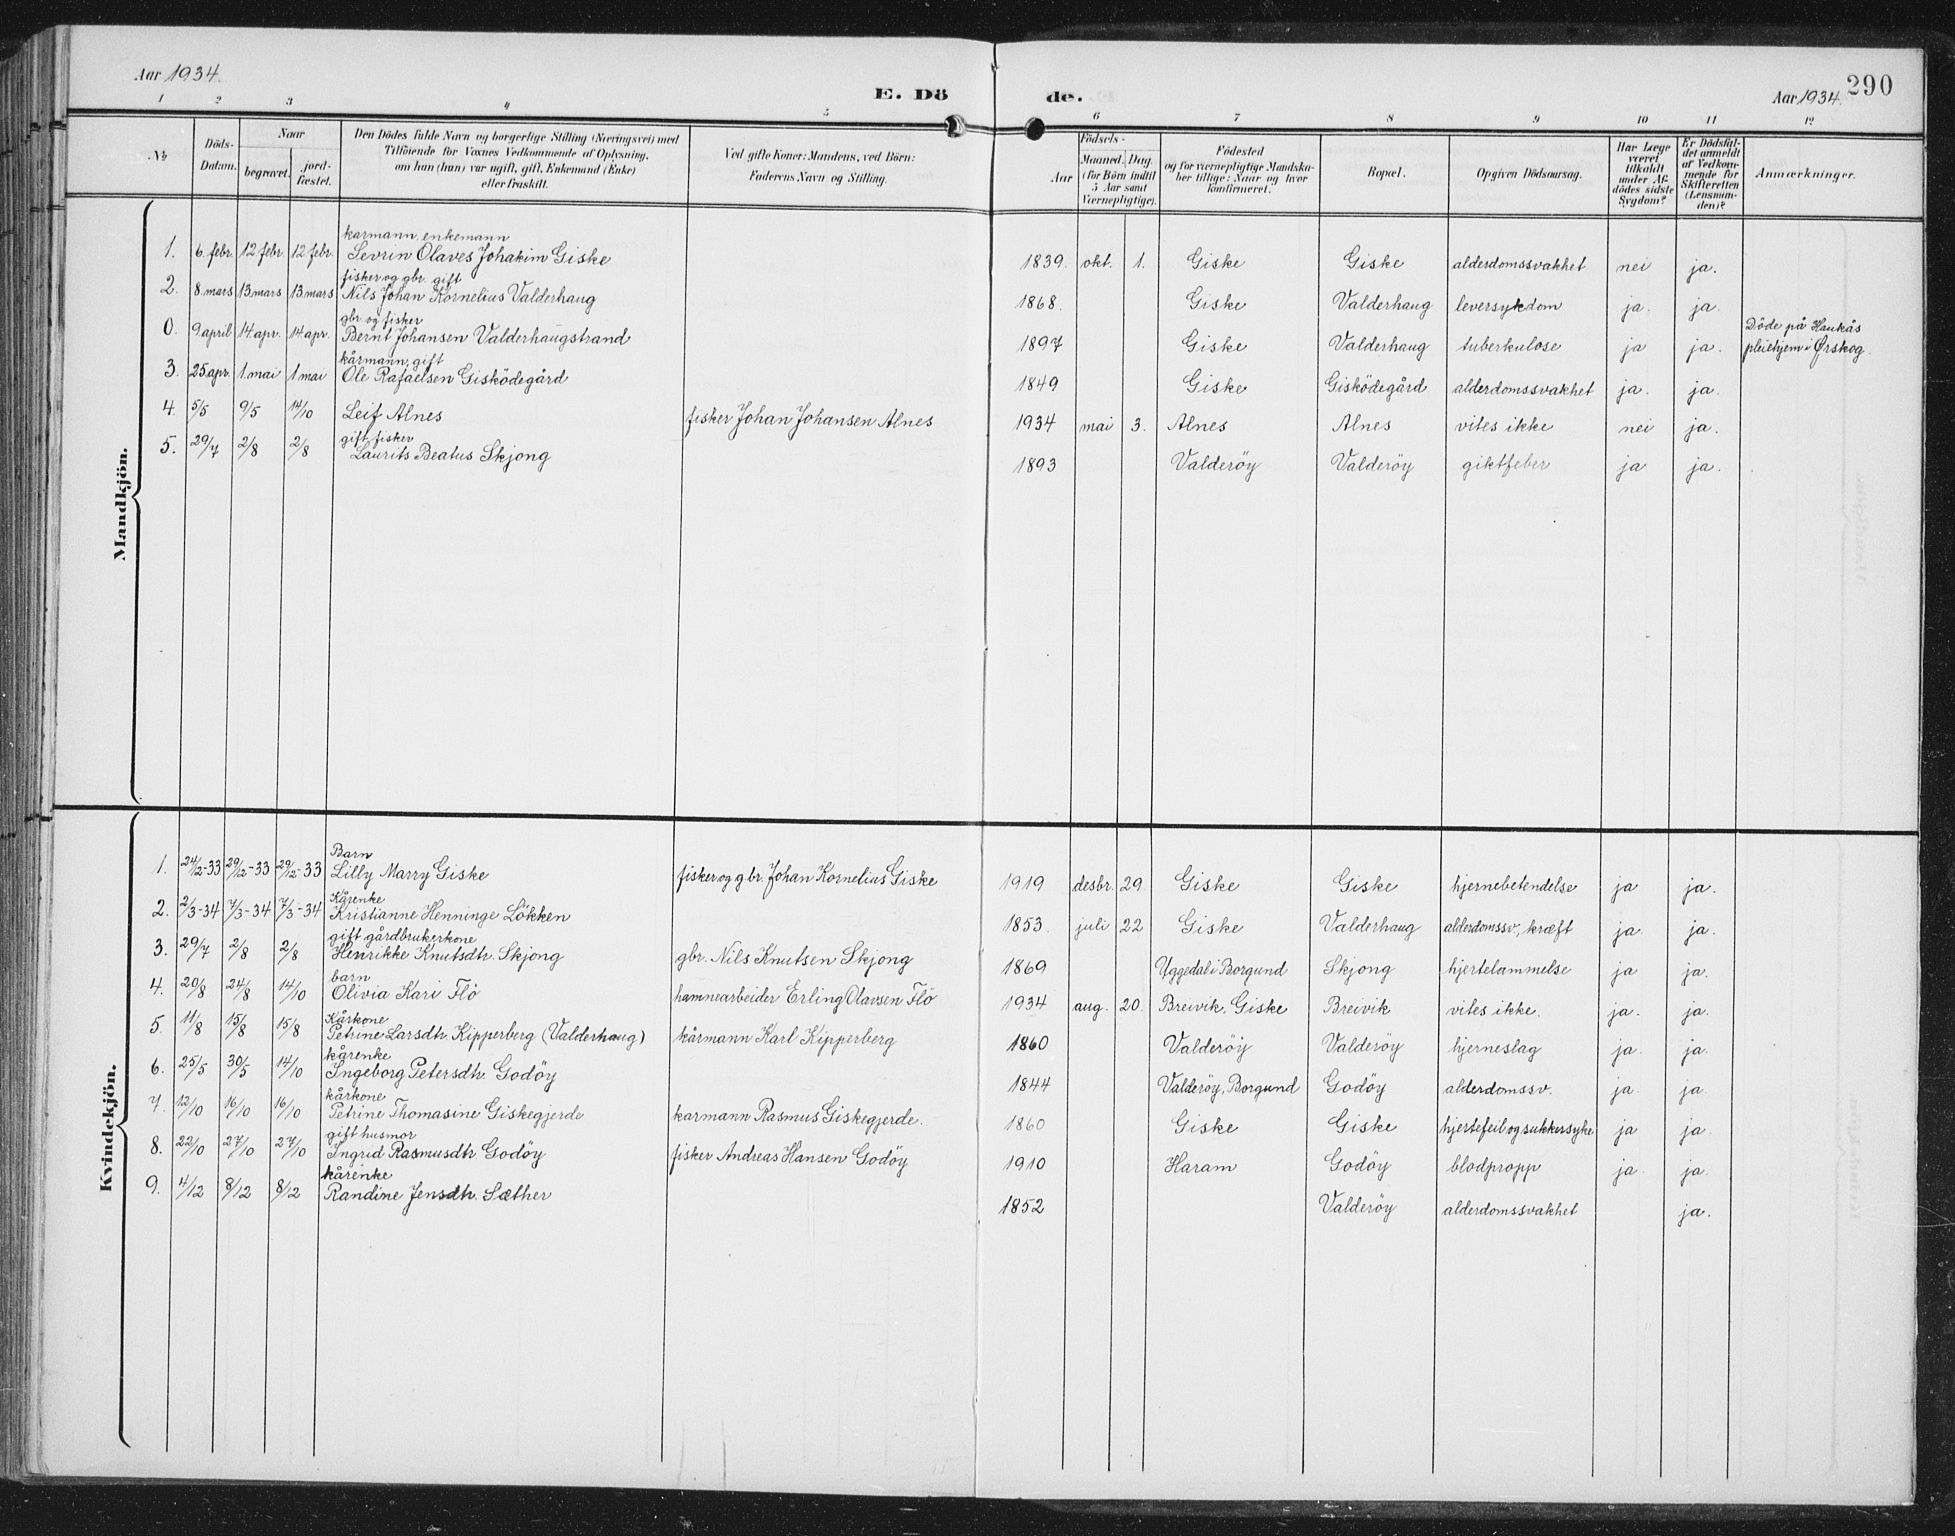 Aar 1934.
E. Dö
de.
Aar 1934.
290
1 2 3 4 5 6 7 8 9 10 11 12
№
Döds-
Datum.
Naar
begravet.
jord-
fæstet.
Den Dödes fulde Navn og borgerlige Stilling (Næringsvei) med
Tilföiende for Voxnes Vedkommende af Oplysning,
om han (hun) var ugift, gift, Enkemand (Enke)
eller fraskilt.
Ved gifte Koner: Mandens, ved Börn:
Faderens Navn og Stilling.
Födsels-
Aar
Maaned. Dag.
(for Börn indtil
5 Aar samt
Værnepligtige).
Födested
og for værnepligtige Mandska-
ber tillige: Naar og hvor
konfirmeret.
Bopæl.
Opgiven Dödsaarsag.
Har Læge
været
tilkaldt
under Af-
dödes sidste
Sygdom?
Er Dödsfal-
det anmeldt
af Vedkom-
mende for
Skifteretten
(Lensman-
den)?
Anmærkninger.
Mandkjön.
karmann, enkemann
1. 6. febr. 12 febr. 12 febr. Sevrin Olaves Johakim Giske 1839. okt. 1. Giske Giske alderdomssvakhet nei ja.
fisker og gbr. gift
2. 8. mars 13 mars 13 mars Nils Johan Kornelius Valderhaug 1868. Giske Valderhaug leversykdom ja. ja.
gbr. og fisker
0. 9. april 14. apr. 14 apr. Bernt Johansen Valderhaugstrand 1897 Giske Valderhaug tuberkulose ja ja. Döde på Haukås
pleiehjem i Ørskog.
kårmann, gift
3. 25. apr. 1. mai 1 mai Ole Rafaelsen Gisködegård 1849 Giske Gisködegård alderdomssvakhet ja. ja.
4. 5/5 9/5 14/10 Leif Alnes fisker Johan Johansen Alnes 1934 mai 3. Alnes Alnes vites ikke nei ja.
gift fisker
5. 29/7 2/8 2/8 Laurits Beatus Skjong 1893 Valderöy Valderöy giktfeber ja ja.
Kvindekjön.
Barn
1. 24/12-33 29/12-33 29/12-33 Lilly Marry Giske fisker og gbr. Johan Kornelius Giske 1919 desbr. 29 Giske Giske hjernebetendelse ja ja.
Kårenke
2. 2/3-34 7/3-34 7/3-34 Kristianne Henninge Lökken 1853. juli 22 Giske Valderhaug alderdomssv., kræft ja. ja.
gift gårdbrukerkone
3. 29/7 2/8 2/8 Henrikke Knutsdtr. Skjong gbr. Nils Knutsen Skjong 1869 Uggedal i Borgund Skjong hjertelammelse ja ja.
barn
4. 20/8 24/8 14/10 Olivia Kari Flö hamnearbeider Erling Olavsen Flö 1934 aug. 20. Breivik, Giske Breivik vites ikke. ja. ja.
Kårkone
5. 11/8 15/8 15/8 Petrine Larsdtr. Kipperberg (Valderhaug) kårmann Karl Kipperberg 1860 Valderöy Valderöy hjerneslag ja. ja.
kårenke
6. 25/5 30/5 14/10 Ingeborg Petersdtr. Godöy 1844 Valderöy, Borgund Godöy alderdomssv. ja. ja.
kårkone
7. 12/10 16/10 16/10 Petrine Thomasine Giskegjerde karmann Rasmus Giskegjerde. 1860 Giske Giske hjertefeil og sukkersyke ja ja.
gift husmor
8. 22/10 27/10 27/10 Ingrid Rasmusdtr Godöy fisker Andreas Hansen Godöy 1910 Haram Godöy blodpropp ja. ja.
kårenke
9. 4/12 8/12 8/12 Randine Jensdtr. Sæther 1852 Valderöy alderdomssvakhet ja.